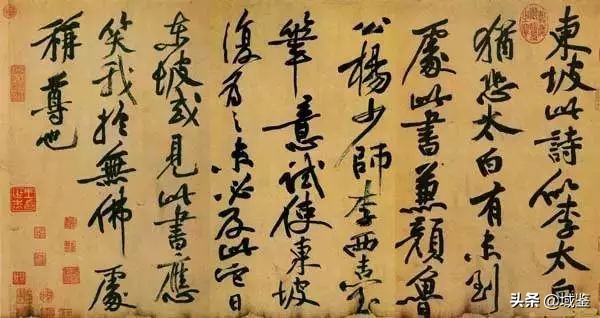 東坡此詩似李太白
猶恐太白有未到
處此書兼顏魯
公楊少師李西臺
筆意試使東坡
復為之未必及此它日
東坡或見此書應
笑我於無佛處
稱尊也
头条 @域鉴